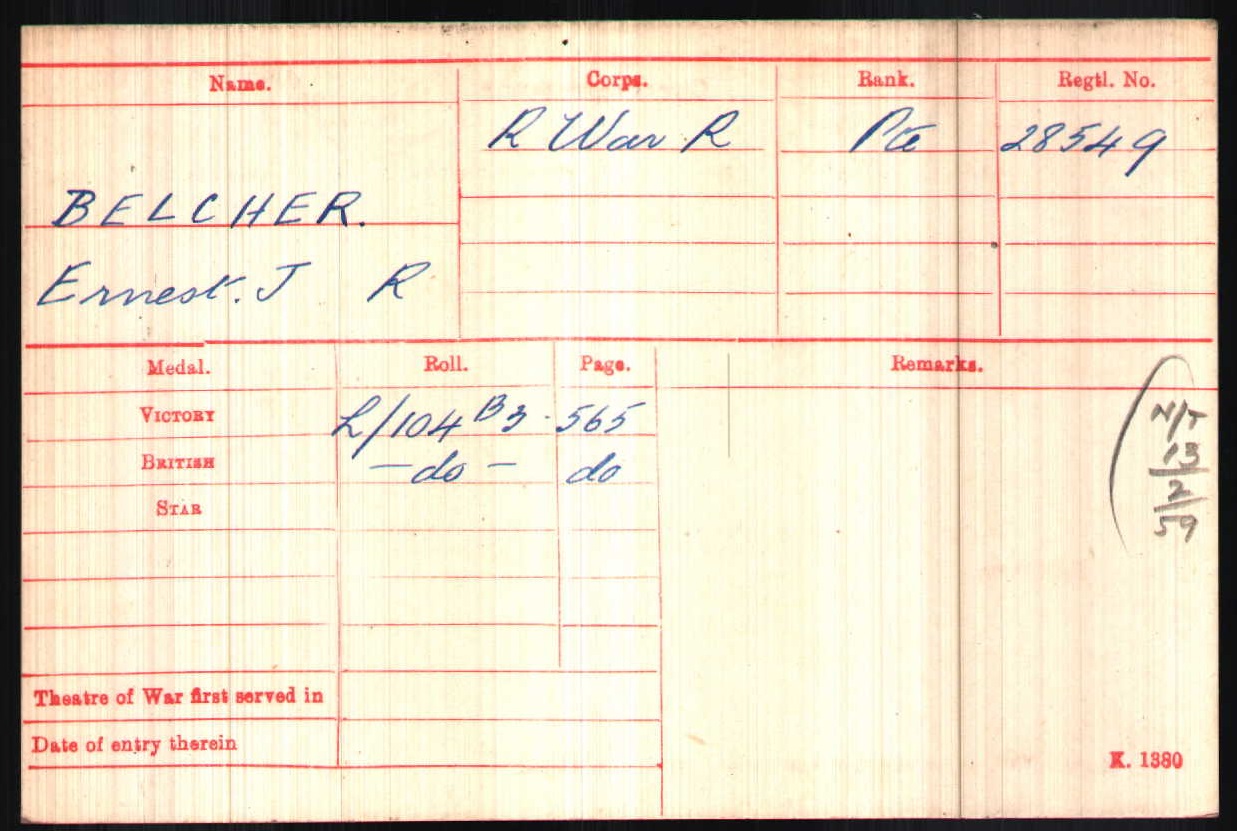 Name. Corps. Rank. Regtl. No.
R War R Pte 28549
BELCHER.
Ernest. J R
Medal. Roll. Page. Remarks.
VICTORY L/104 B3 . 565
BRITISH — do — do
STAR
N/T
13
2
59
Theatre of War first served in
Date of entry therein
K. 1380